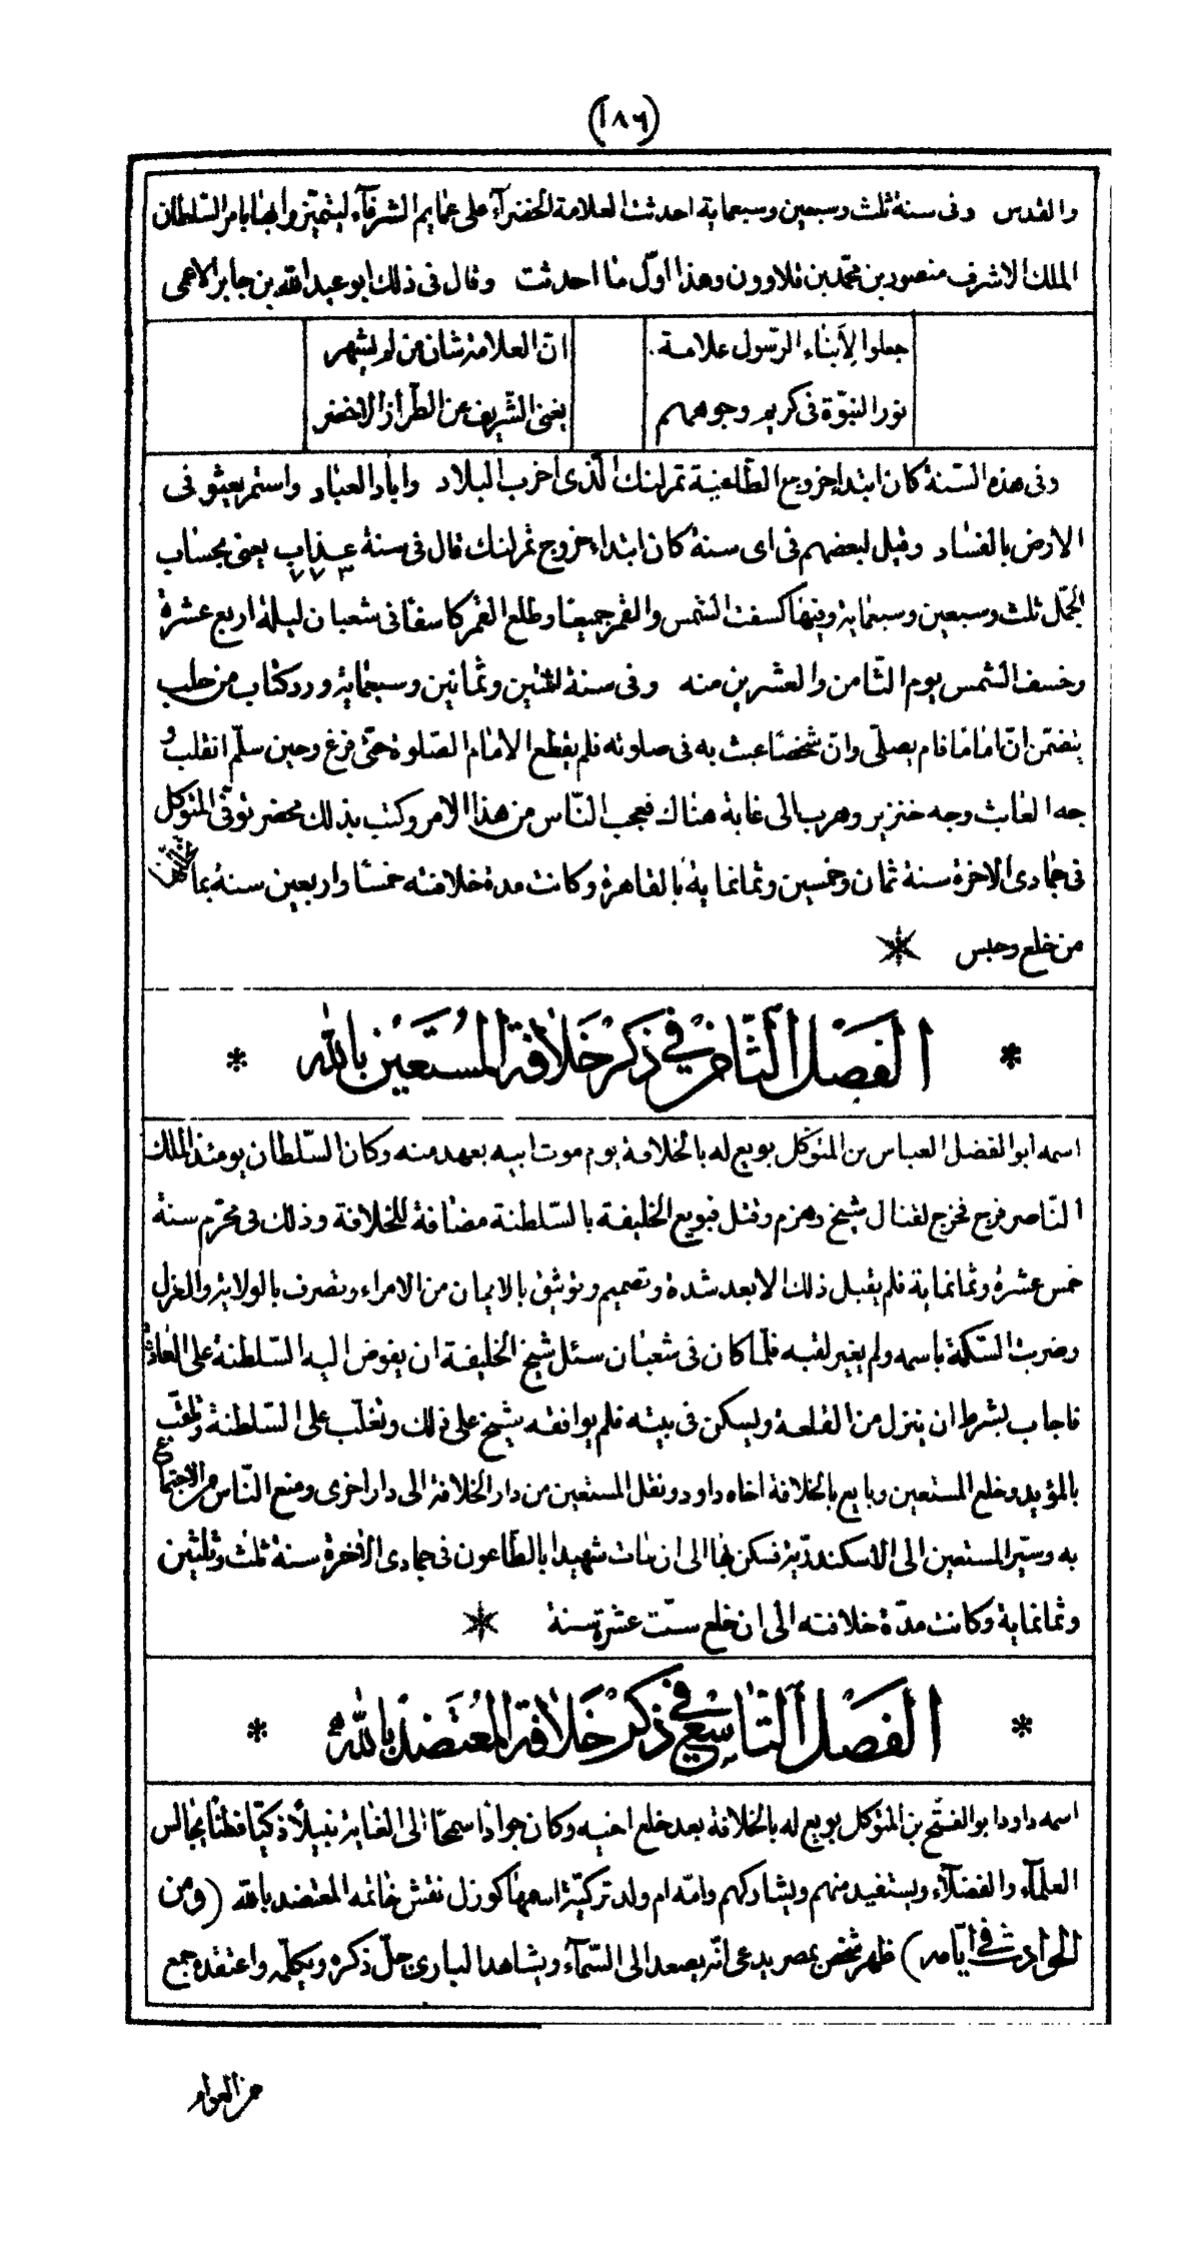 (١٨٦)
والقدس وفى سنة ثلث وسبعين وسبعماية احدثت العلامة الخضرآء على عمايم الشرفآء ليتميزوا بها بامر السّلطان
الملك الاشرف منصور بن محمّد بن قلاوون وهذا اوّل ما احدثت وقال فى ذلك ابو عبد الله بن جابر الاعمى
جعلوا لِأبناء الرّسول علامة انّ العلامة شان من لم يشهر
نور النبوّة فى كريم وجوههم يغنى الشّريف عن الطّراز الاخضر
وفى هذه السّنة كان ابتداء خروج الطّاغية تمرلنك الّذى اخرب البلاد واباد العباد واستمر يعثو فى
الارض بالفساد وقيل لبعضهم فى اى سنة كان ابتداء خروج تمرلنك قال فى سنة عذاب يعنى بحساب
٧٧٣
الجمّل ثلث وسبعين وسبعماية وفيها كسفت الشمس والقمر جميعا وطلع القمر كاسفا فى شعبان ليلة اربع عشرة
وخسف الشمس يوم الثّامن والعشرين منه وفى سنة اثنتين وثمانين وسبعماية ورد كتاب من حلب
يتضمّن انّ اماما قام يصلّى وانّ شخصا عبث به فى صلوته فلم يقطع الامام الصّلوة حتى فرغ وحين سلّم انقلب و
جه العابث وجه خنزير وهرب الى غابة هناك فعجب النّاس من هذا الامر وكتب بذلك محضر توفّى المتوكل
فى جمادى الاخرة سنة ثمان وخمسين وثمانماية بالقاهرة وكانت مدة خلافته خمسا واربعين سنة بما
من خلع وحبس *
* الفصل الثّامن في ذكر خلافة المستعين بالله *
اسمه ابو الفضل العباس بن المتوكل بويع له بالخلافة يوم موت ابيه بعهد منه وكان السّلطان يومئذ الملك
النّاصر فرج فخرج لقتال شيخ وهزم وقتل فبويع الخليفة بالسّلطنة مضافة للخلافة وذلك فى محرّم سنة
خمس عشرة وثمانماية فلم يقبل ذلك الا بعد شدة وتصميم وتوثيق بالايمان من الامراء وتصرف بالولاية والعزل
وضربت السّكة باسمه ولم يغير لقبه فلمّا كان فى شعبان سئل شيخ الخليفة ان يفوض اليه السّلطنة على العادة
فاجاب بشرط ان ينزل من القلعة ويسكن فى بيته فلم يوافقه شيخ على ذلك وتغلّب على السّلطنة وتلقّب
بالمؤيد وخلع المستعين وبايع بالخلافة اخاه داود ونقل المستعين من دار الخلافة الى دار اخرى ومنع النّاس من الاجتماع
به وسيّر المستعين الى الاسكندريّة فسكن بها الى ان مات شهيدا بالطّاعون فى جمادى الاخرة سنة ثلث وثلثين
وثمانماية وكانت مدّة خلافته الى ان خلع ستّ عشرة سنة *
* الفصل التّاسع في ذكر خلافة المعتضد بالله *
اسمه داود ابو الفتح بن المتوكل بويع له بالخلافة بعد خلع اخيه وكان جوادا سمحا الى الغاية نبيلا ذكيّا فطنا يجالس
العلمآء والفضلآء ويستفيد منهم ويشاركهم وامّه ام ولد تركيّة اسمها كوزل نقش خاتمه المعتضد بالله (ومن
الحوادث في ايّامه) ظهر شخص بمصر يدعى انّه يصعد الى السّمآء ويشاهد البارى جلّ ذكره ويكلّمه واعتقده جمع
من العوام